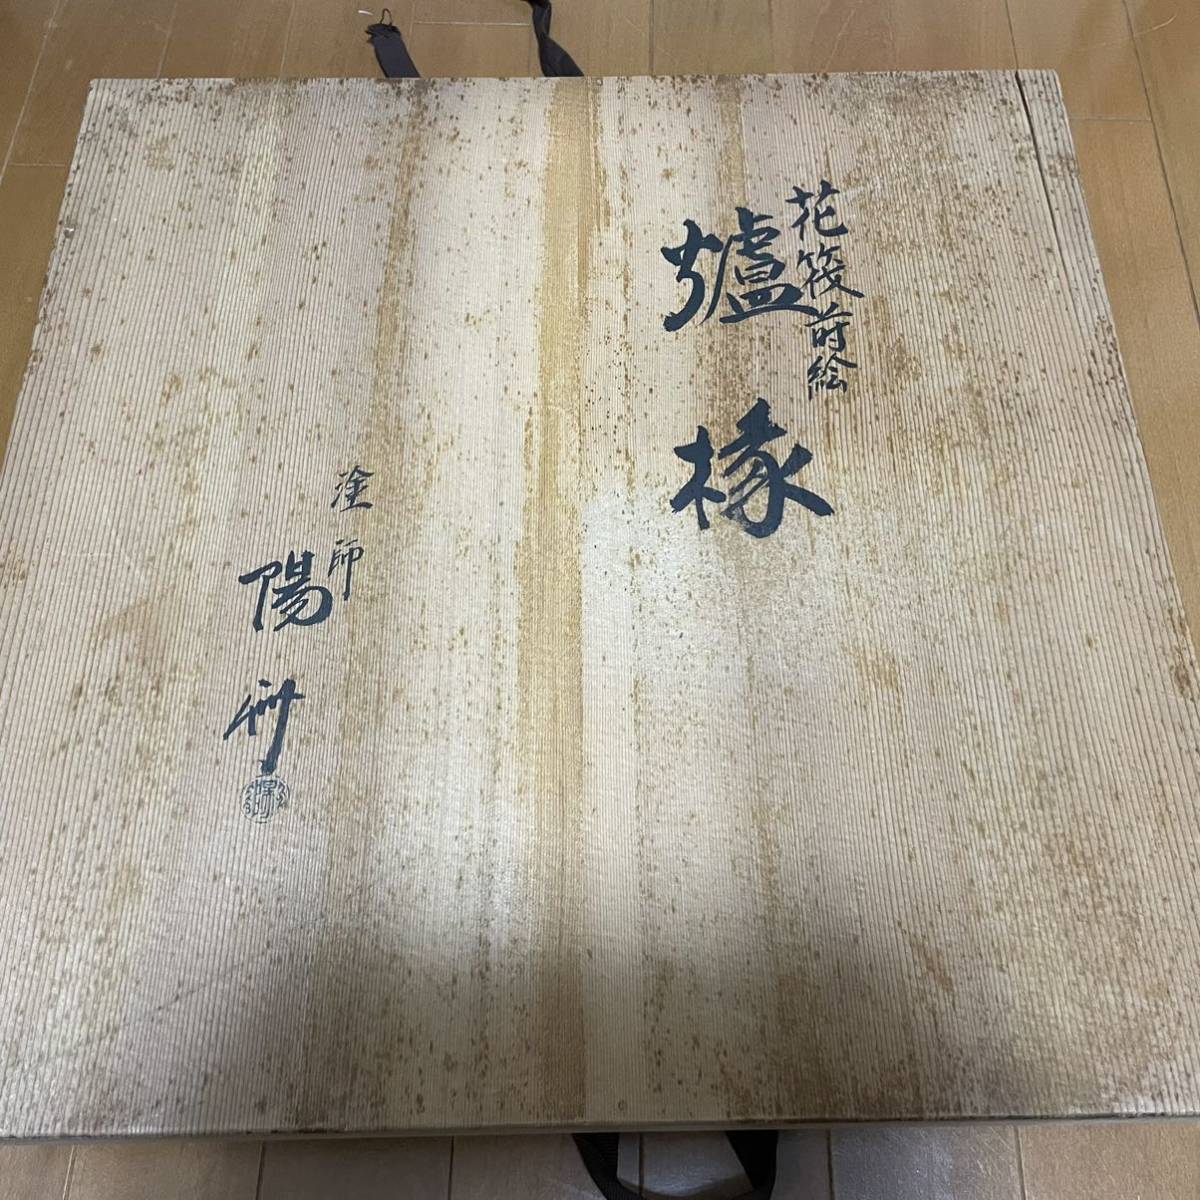 花筏蒔絵
爐椽
塗師
陽舟